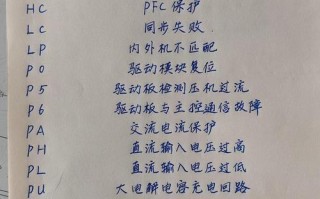 HC PFC保护
LC 同步失败
LP 内外机不匹配
P0 驱动模块复位
P5 驱动板检测压机过流
P6 驱动板与主控通信故障
PA 交流电流保护
PH 直流输入电压过高
PL 直流输入电压过低
PU 大电解电容充电回路